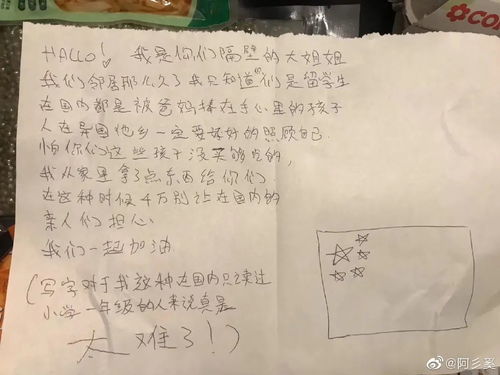 HALLO! 我是你们隔壁的大姐姐
我们邻居那么久了我只知道你们是留学生
在国内都是被爸妈捧在手心里的孩子
人在异国他乡一定要好好的照顾自己.
怕你们这些孩子没买够吃的,
我从家里拿了点东西给你们
在这种时候千万别让在国内的
亲人们担心
我们一起加油
(写字对于我这种在国内只读过
小学一年级的人来说真是
太难了!)
CO
@阿乡爻